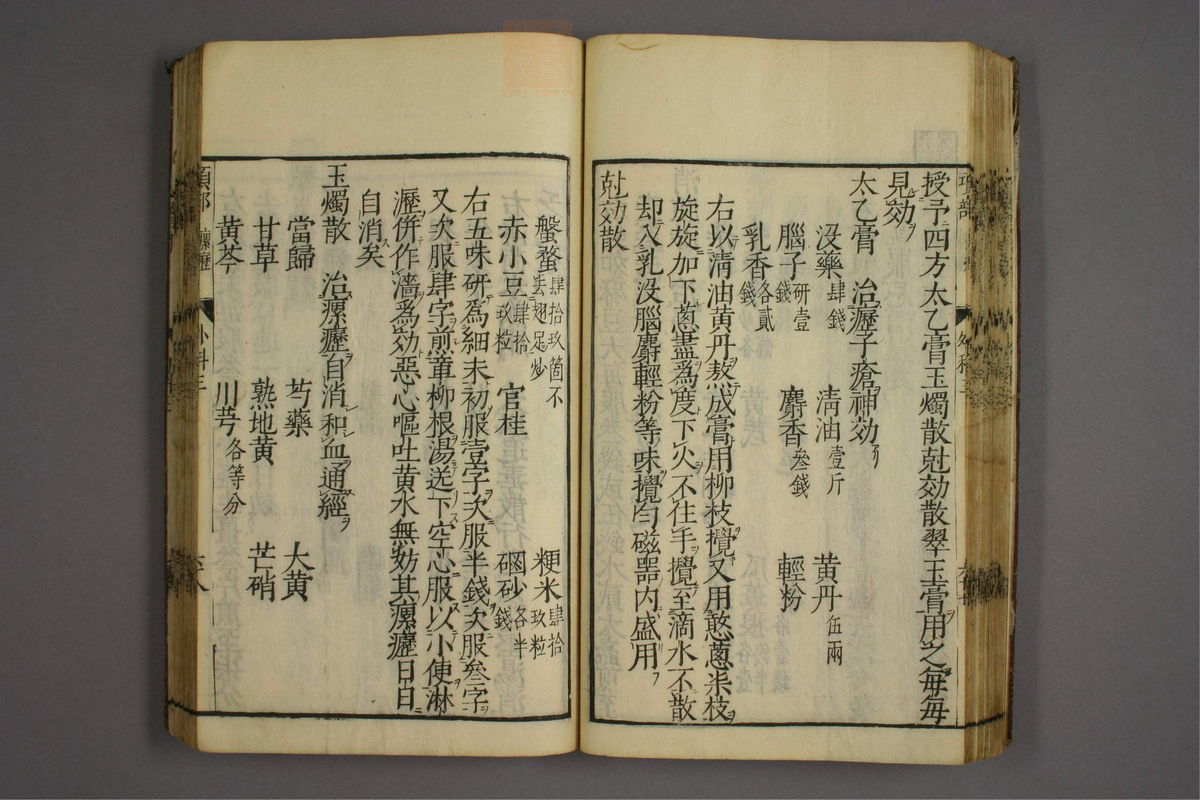 授予四方太乙膏玉燭散尅効散翠玉膏用之每每
見効
太乙膏　治瀝子瘡神効
沒藥肆錢　清油壹斤　黄丹伍兩
腦子研壹錢　麝香叁錢　輕粉
乳香各貳錢
右以清油黄丹熬成膏用柳枝攪又用憨蔥柒枝
旋旋加下蔥盡為度下火不住手攪至滴水不散
却入乳沒腦麝輕粉等味攪勻磁器内盛用
尅効散
盤蝥肆拾玖箇不去翅足炒　粳米肆拾玖粒
赤小豆肆拾玖粒　官桂　硇砂各半錢
右五味研為細末初服壹字次服半錢次服叁字
又次服肆字煎葦柳根湯送下空心服以小便淋
瀝併作濇為効惡心嘔吐黄水無妨其瘰癧日日
自消矣
玉燭散　治瘰癧自消和血通經
當歸　芍藥　大黄
甘草　熟地黄　芒硝
黄芩　川芎各等分
項部　瘰癧　外科三